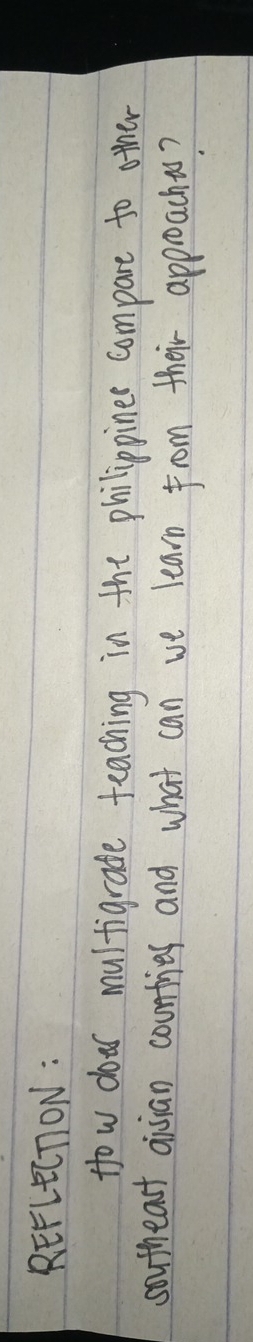 REFLECTION:
How does multigrade teaching in the philippines compare to other
southeast aisian countries and what can we learn from their approaches?